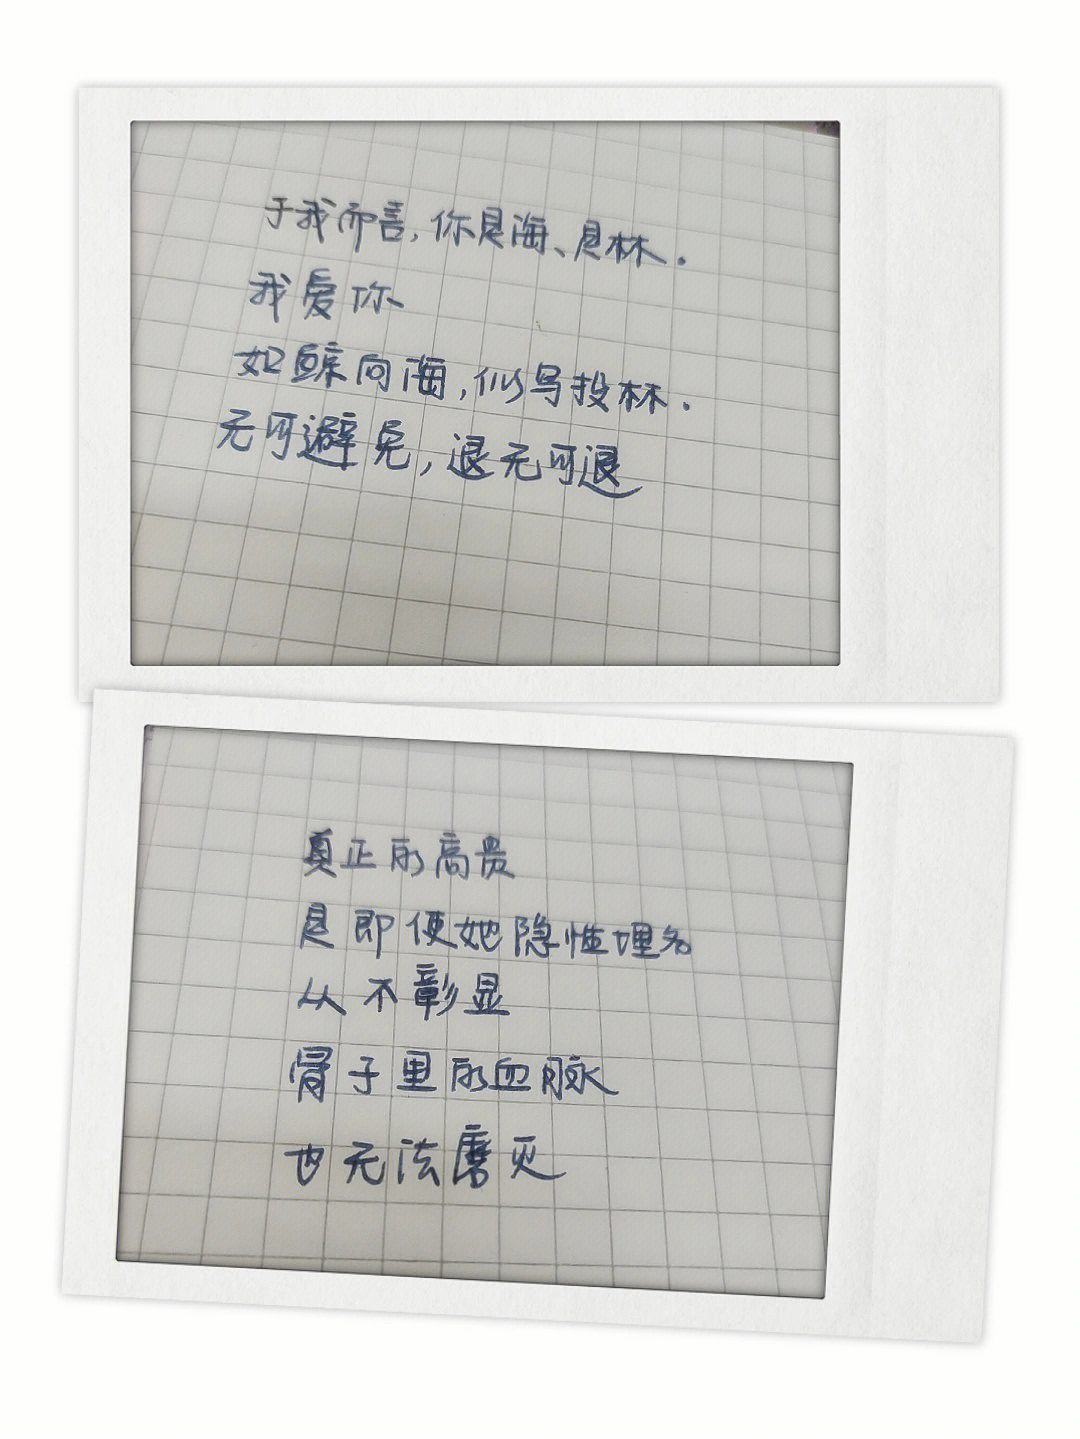 于我而言,你是海、是林.
我爱你
如鲸向海,似鸟投林.
无可避免,退无可退
真正的高贵
是即使她隐性埋名
从不彰显
骨子里的血脉
也无法磨灭